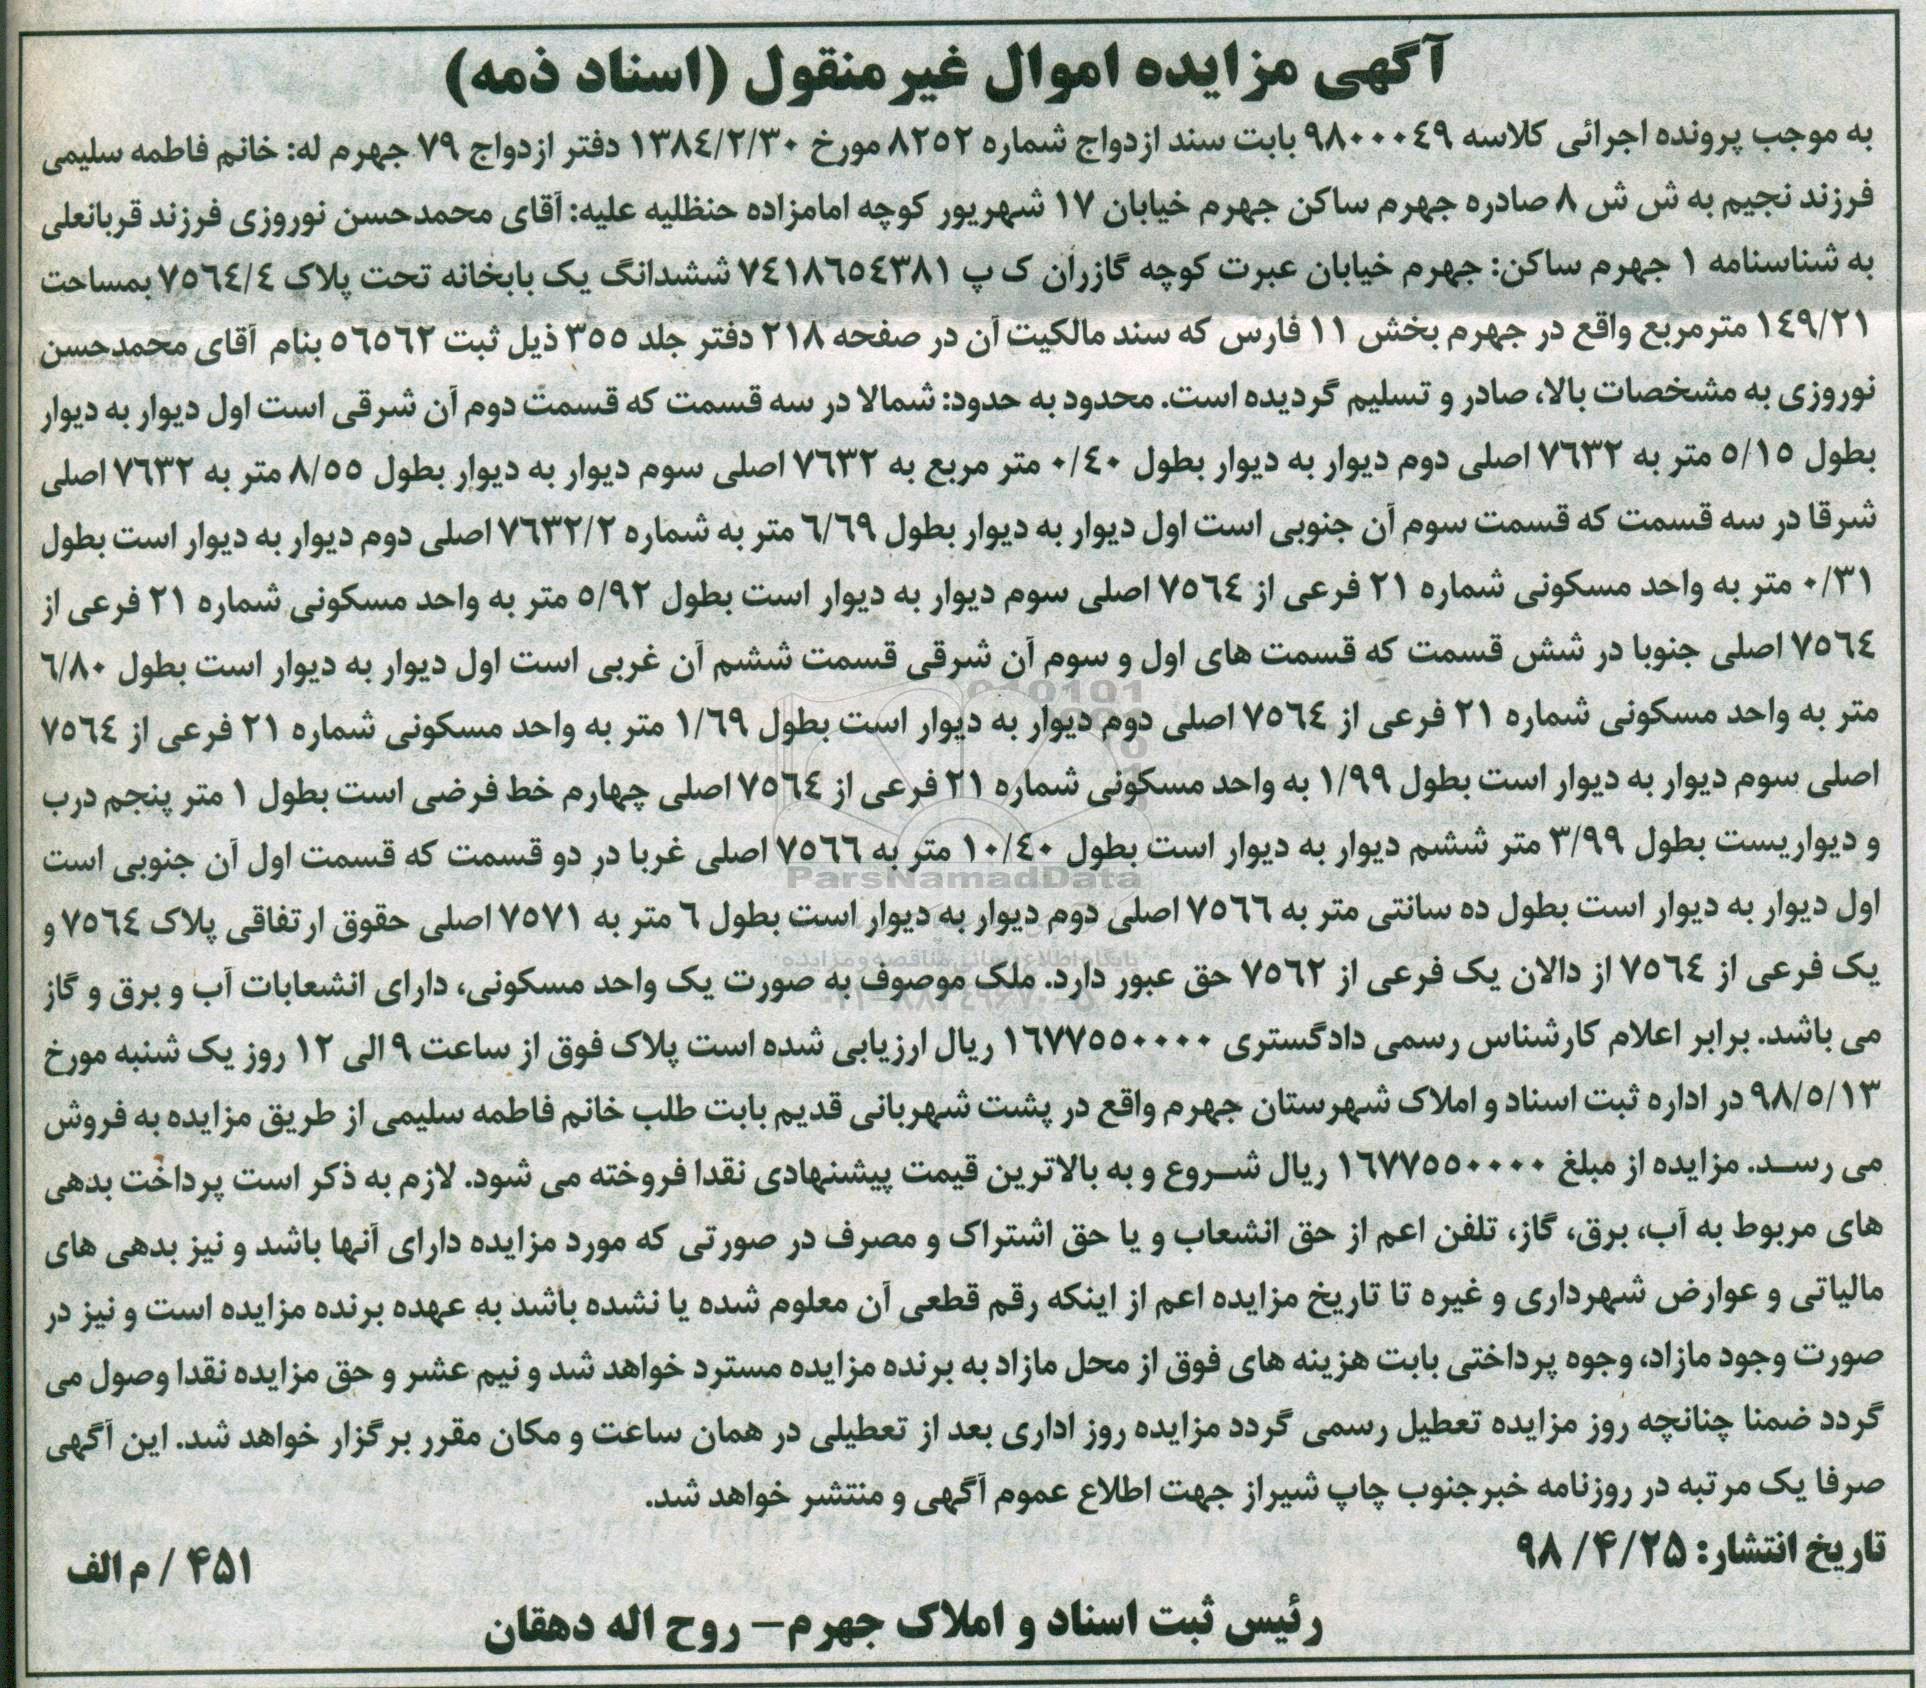 آگهی مزایده اموال غیر منقول (اسناد ذمه)
به موجب پرونده اجرائی کلاسه ۹۸۰۰۰۴۹ بابت سند ازدواج شماره ۸۲۵۲ مورخ ۱۳۸۴/۲/۳۰ دفتر ازدواج ۷۹ جهرم له: خانم فاطمه سلیمی
فرزند نجیم به ش ش ۸ صادره جهرم ساکن جهرم خیابان ۱۷ شهریور کوچه امامزاده حنظلیه علیه: آقای محمدحسن نوروزی فرزند قربانعلی
به شناسنامه ۱ جهرم ساکن: جهرم خیابان عبرت کوچه گازران ک پ ۷۴۱۸۶۵۴۳۸۱ ششدانگ یک بابخانه تحت پلاک ۷۵۶۴/۴ بمساحت
۱۴۹/۲۱ مترمربع واقع در جهرم بخش ۱۱ فارس که سند مالکیت آن در صفحه ۲۱۸ دفتر جلد ۳۵۵ ذیل ثبت ۵۶۵۶۲ بنام آقای محمدحسن
نوروزی به مشخصات بالا، صادر و تسلیم گردیده است. محدود به حدود: شمالا در سه قسمت که قسمت دوم آن شرقی است اول دیوار به دیوار
بطول ۵/۱۵ متر به ۷۶۳۲ اصلی دوم دیوار به دیوار بطول ۰/۴۰ متر مربع به ۷۶۳۲ اصلی سوم دیوار به دیوار بطول ۸/۵۵ متر به ۷۶۳۲ اصلی
شرقا در سه قسمت که قسمت سوم آن جنوبی است اول دیوار به دیوار بطول ۶/۶۹ متر به شماره ۷۶۳۲/۲ اصلی دوم دیوار به دیوار است بطول
۰/۳۱ متر به واحد مسکونی شماره ۲۱ فرعی از ۷۵۶۴ اصلی سوم دیوار به دیوار است بطول ۵/۹۲ متر به واحد مسکونی شماره ۲۱ فرعی از
۷۵۶۴ اصلی جنوبا در شش قسمت که قسمت های اول و سوم آن شرقی قسمت ششم آن غربی است اول دیوار به دیوار است بطول ۶/۸۰
متر به واحد مسکونی شماره ۲۱ فرعی از ۷۵۶۴ اصلی دوم دیوار به دیوار است بطول ۱/۶۹ متر به واحد مسکونی شماره ۲۱ فرعی از ۷۵۶۴
اصلی سوم دیوار به دیوار است بطول ۱/۹۹ به واحد مسکونی شماره ۲۱ فرعی از ۷۵۶۴ اصلی چهارم خط فرضی است بطول ۱ متر پنجم درب
و دیواریست بطول ۳/۹۹ متر ششم دیوار به دیوار است بطول ۱۰/۴۰ متر به ۷۵۶۶ اصلی غربا در دو قسمت که قسمت اول آن جنوبی است
اول دیوار به دیوار است بطول ده سانتی متر به ۷۵۶۶ اصلی دوم دیوار به دیوار است بطول ۶ متر به ۷۵۷۱ اصلی حقوق ارتفاقی پلاک ۷۵۶۴ و
یک فرعی از ۷۵۶۴ از دالان یک فرعی از ۷۵۶۲ حق عبور دارد. ملک موصوف به صورت یک واحد مسکونی، دارای انشعابات آب و برق و گاز
می باشد. برابر اعلام کارشناس رسمی دادگستری ۱۶۷۷۵۵۰۰۰۰ ریال ارزیابی شده است پلاک فوق از ساعت ۹ الی ۱۲ روز یک شنبه مورخ
۹۸/۵/۱۳ در اداره ثبت اسناد و املاک شهرستان جهرم واقع در پشت شهربانی قدیم بابت طلب خانم فاطمه سلیمی از طریق مزایده به فروش
می رسد. مزایده از مبلغ ۱۶۷۷۵۵۰۰۰۰ ریال شروع و به بالاترین قیمت پیشنهادی نقدا فروخته می شود. لازم به ذکر است پرداخت بدهی
های مربوط به آب، برق، گاز، تلفن اعم از حق انشعاب و یا حق اشتراک و مصرف در صورتی که مورد مزایده دارای آنها باشد و نیز بدهی های
مالیاتی و عوارض شهرداری و غیره تا تاریخ مزایده اعم از اینکه رقم قطعی آن معلوم شده یا نشده باشد به عهده برنده مزایده است و نیز در
صورت وجود مازاد، وجوه پرداختی بابت هزینه های فوق از محل مازاد به برنده مزایده مسترد خواهد شد و نیم عشر و حق مزایده نقدا وصول می
گردد ضمنا چنانچه روز مزایده تعطیل رسمی گردد مزایده روز اداری بعد از تعطیلی در همان ساعت و مکان مقرر برگزار خواهد شد. این آگهی
صرفا یک مرتبه در روزنامه خبرجنوب چاپ شیراز جهت اطلاع عموم آگهی و منتشر خواهد شد.
تاریخ انتشار: ۹۸/۴/۲۵
۴۵۱ / م الف
رئیس ثبت اسناد و املاک جهرم – روح اله دهقان
ParsNamadData
پایگاه اطلاع رسانی مناقصه و مزایده